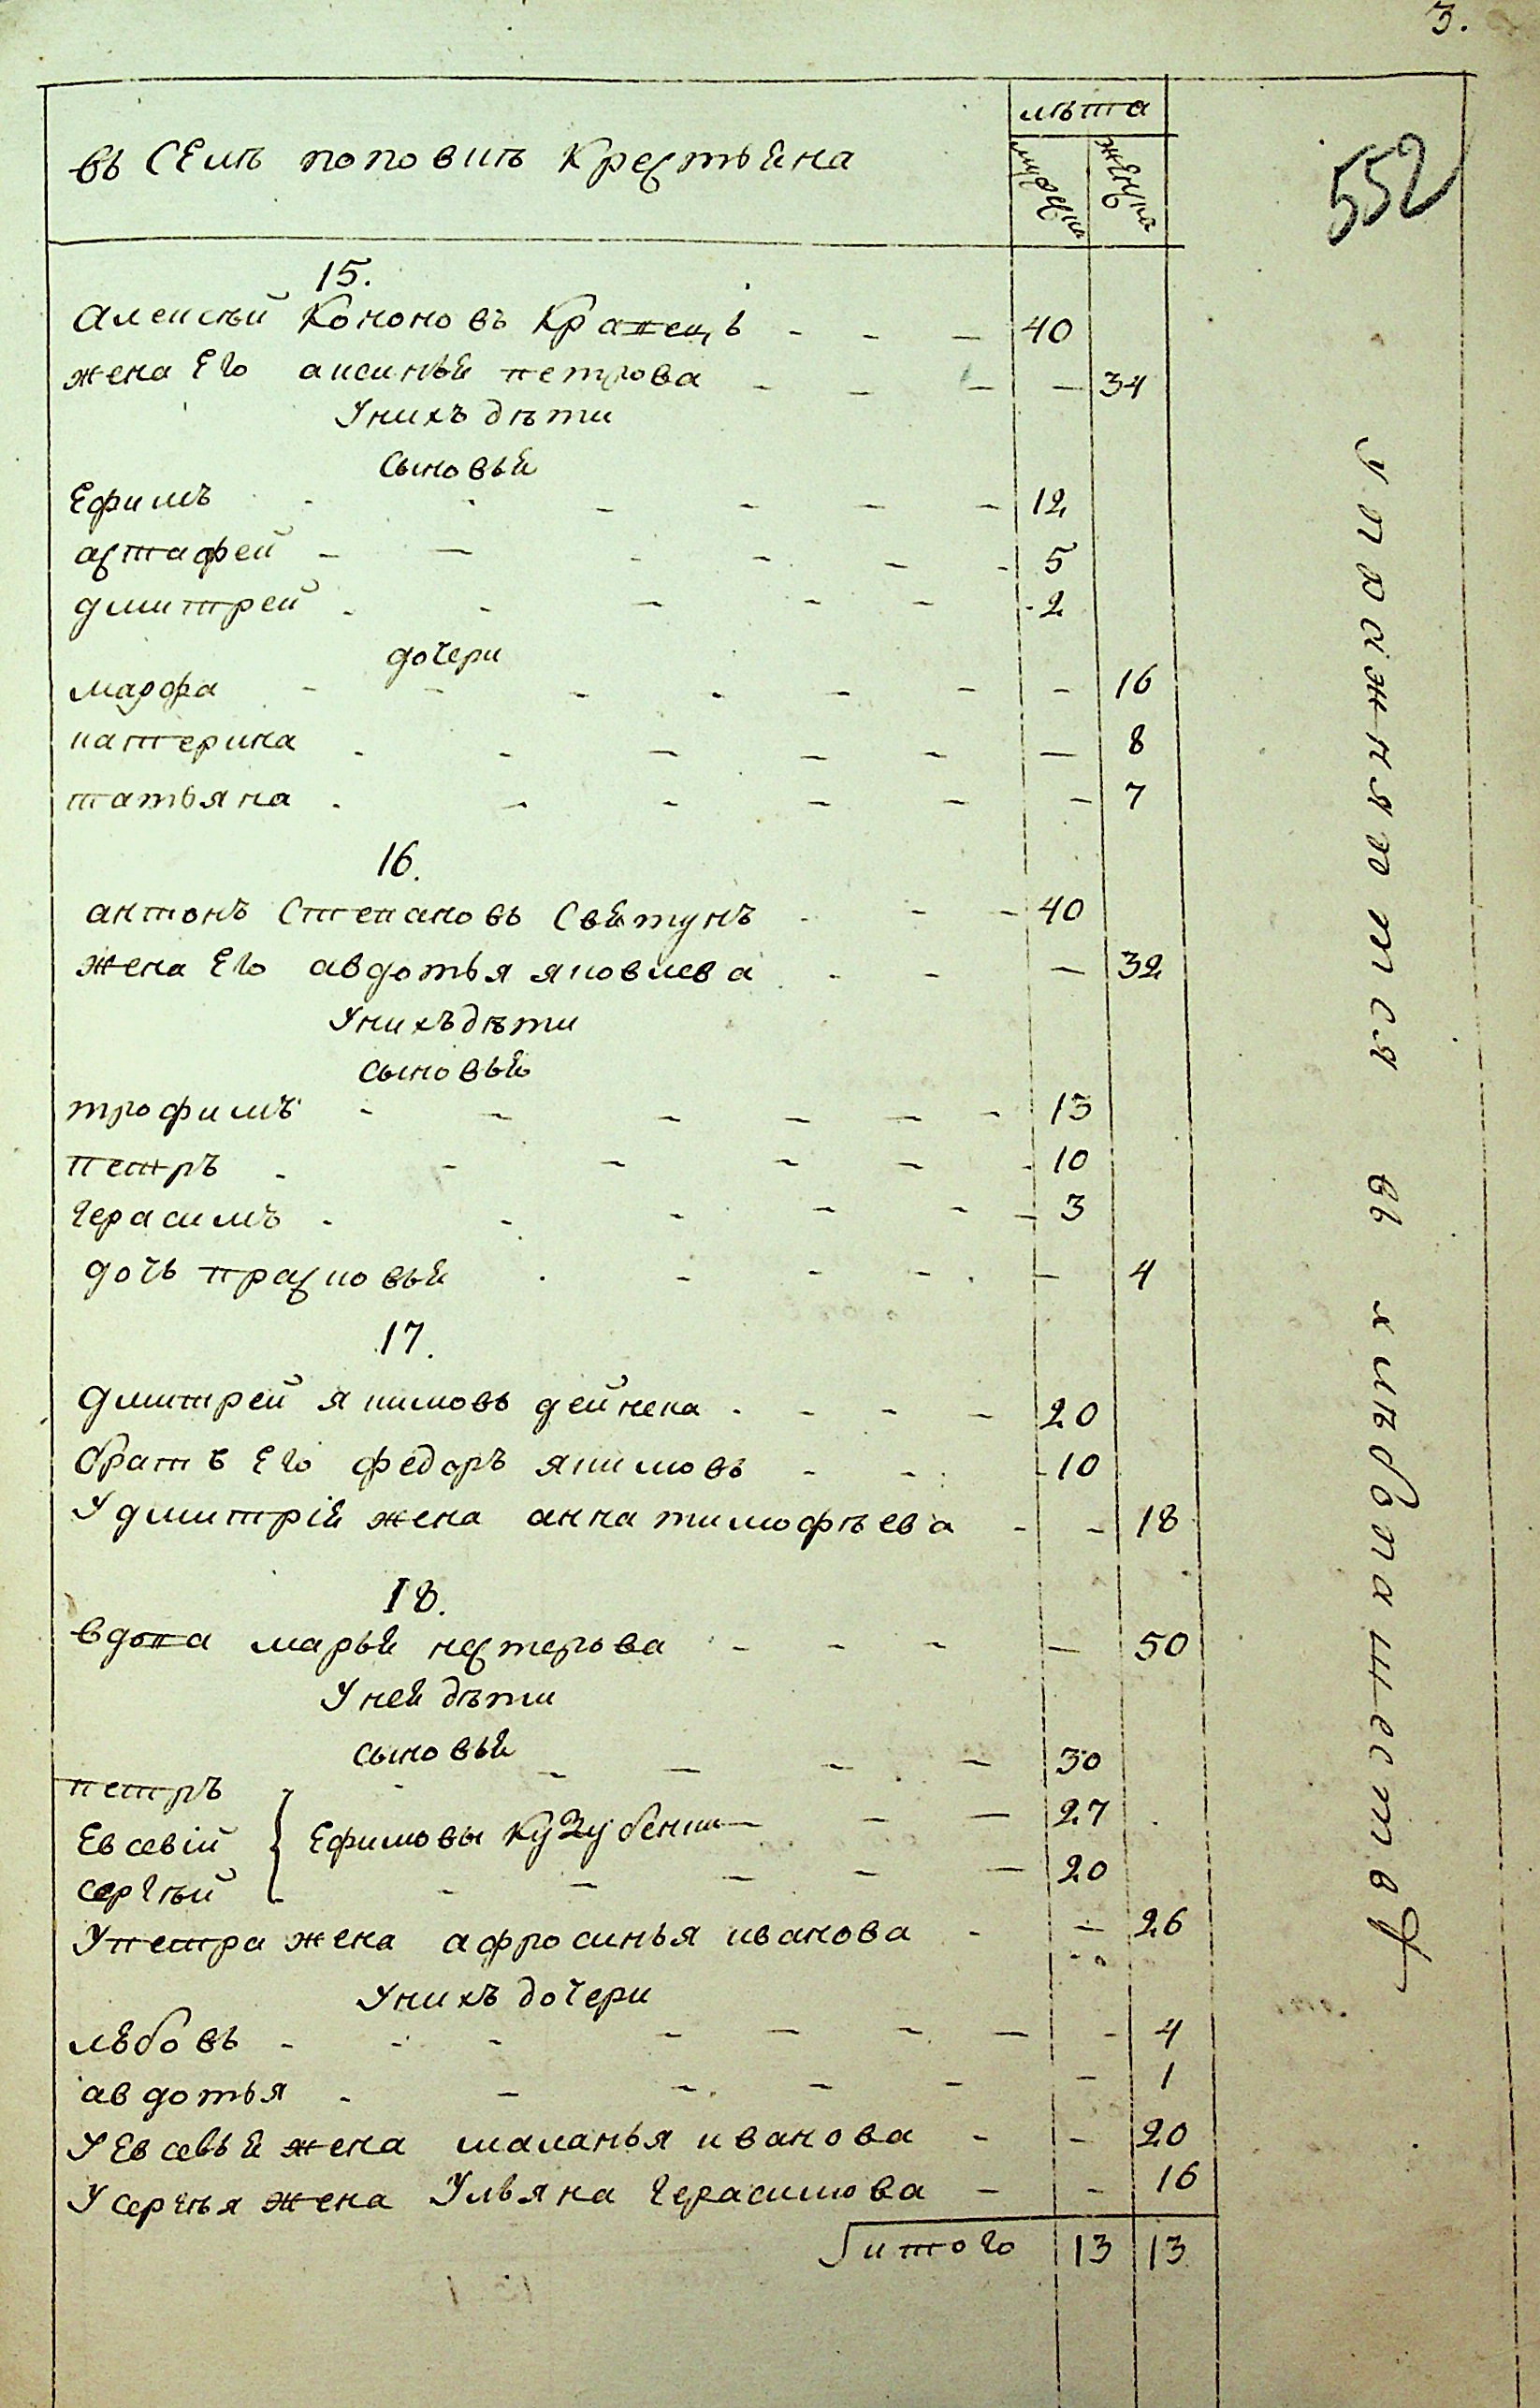 3.
552
лѣта
въ селѣ поповиѣ крестьяна
мужеска
женска
15.
алексѣй кононовъ кравецъ 40
жена Его аксинья петрова 34
У нихъ дѣти
сыновья
Ефимъ 12
астафей 5
дмитрей 2
дочери
марфа 16
катерина 8
татьяна 7
16.
антонъ степановъ свѣтунъ 40
жена Его авдотья яковлева 32
У нихъ дѣти
сыновья
трофимъ 13
петръ 10
герасимъ 3
дочь прасковья 4
17.
дмитрей якимовъ дейнека 20
братъ Его федоръ якимовъ 10
У дмитрія жена анна тимофѣева 18
18.
вдова марья нестерова 50
У ней дѣти
сыновья
петръ 30
Евсевій Ефимовы кузубенки 27
сергѣй 20
У петра жена афросинья иванова 26
У нихъ дочери
любовь 4
авдотья 1
У Евсевья жена маланья иванова 20
У сергѣя жена Ульяна герасимова 16
итого 13 13
въ